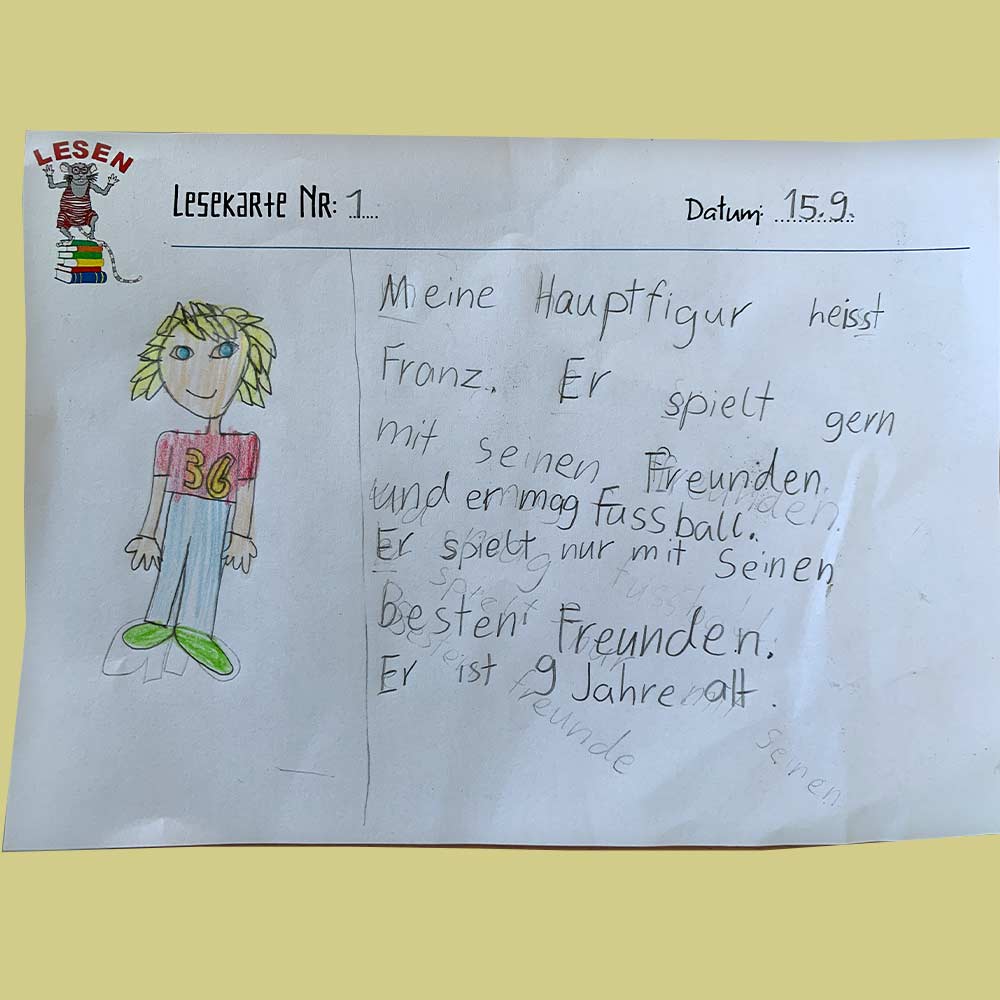 LESEN
Lesekarte Nr: 1
Datum: 15.9.
36
Meine Hauptfigur heisst
Franz. Er spielt gern
mit seinen Freunden
und er mag Fussball.
Er spielt nur mit Seinen
Besten Freunden.
Er ist 9 Jahre alt.
freunde
seinen